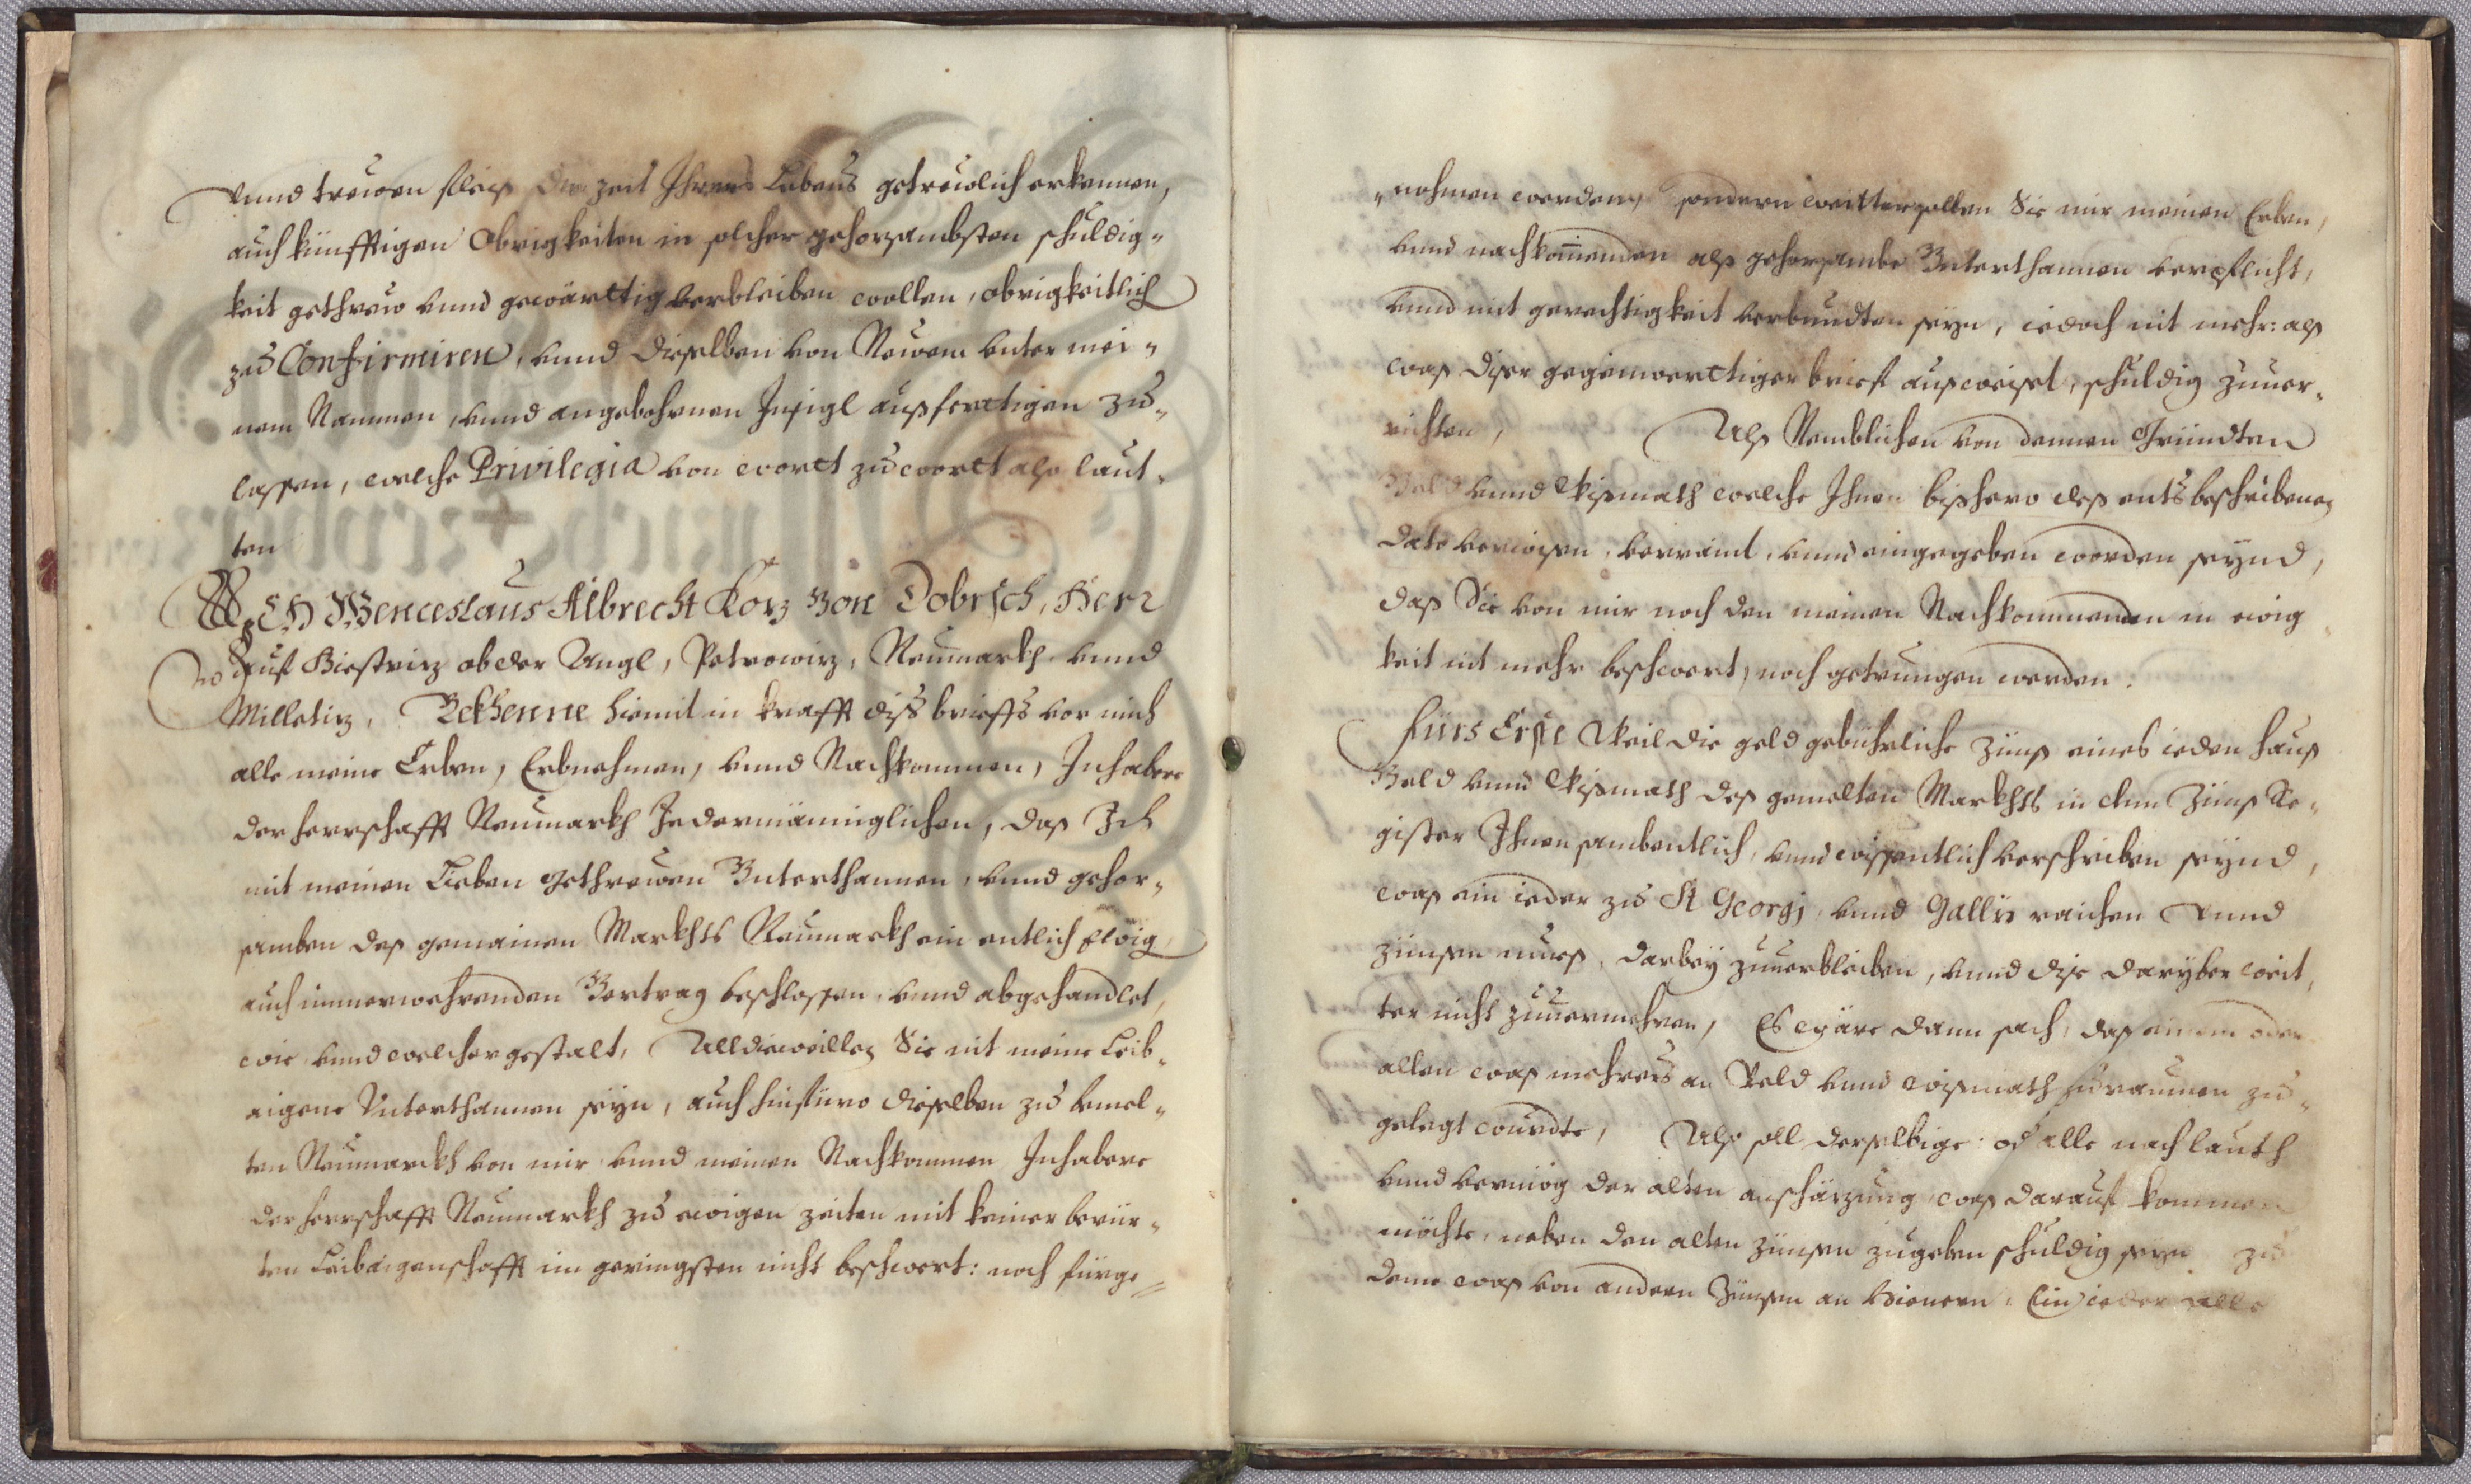 Vnnd trewen fleiß die zeit Ihrers Lebens getrewlich erkennen,
auch künfftigen Obrigkeiten in solcher gehorsambsten schuldig„
keit gethrew vnnd gewärttig verbleiben wollen, obrigkeitlich
zu Confirmiren, vnnd dieselben von Newem vnter mei„
nem Nammen, vnnd angebohrnen Insigl außferttigen zu„
lassen, welche Privilegia von wortt zu wortt also laut„
ten
ICH Wenceslaus Albrecht Korz Von Dobrsch, Herr
auf Biestriz ob der Angl, Petrowiz, Neumarkh vnnd
Milletiz, Bekhenne hiemit in krafft diß brieffs vor mich
alle meine Erben, Erbnehmen, vnnd Nachkommen, Inhabere
der herrschafft Neumarkh Jedermänniglichen, daß Ich
mit meinen Lieben gethrewen Vnterthannen, vnnd gehor„
samben deß gemainen Markhts Neumarkh ein entlich Ewig
auch immerwehrenden Vertrag beschlossen, vnnd abgehandlet,
wie vnnd welcher gestalt, Alldieweillen Sie nit meine Leib„
aigene Vnterthannen seyn, auch hinfüro dieselben zu bemel„
ten Neumarckh von mir vnnd meinen Nachkommen Inhabere
der herrschafft Neumarkh zu ewigen zeiten mit keiner berür„
ten Leibaigenschafft im geringsten nicht beschwert: noch fürge„
„nohmen werden, sondern weitter sollen Sie mir meinen Erben,
vnnd nachkommenden alß gehorsambe Vnterthannen verpflicht,
vnnd mit gerechtigkeit verbundten seyn, iedoch nit mehr: alß
waß diser gegenwerttiger brieff außweiset, schuldig zuuer„
richten, Alß Nemblichen von dennen Gründten
Veld vnnd Wißmath welche Ihnen bißhero deß entsbeschribenen
dato verwisen, verraint, vnnd eingegeben worden seynd,
daß Sie von mir noch den meinen Nachkommenden in ewig„
keit nit mehr beschwert, noch getrungen werden.
Fürs Erste Weil die geld gebührliche Zünß eines ieden hauß
Veld vnnd Wißmath deß gemelten Markhts in dem Zünß Re„
gister Ihnen sambentlich, vnnd wissentlich verschriben seynd,
waß ein ieder zu St Georgj, vnnd Gallij raichen Vnnd
zünsen mueß, darbey zuuerbleiben, vnnd dise daryber weit„
ter nicht zuuermehren, Es wäre dann sach, daß einem oder
allen waß mehrers an Veld vnnd wißmath zuraumen zu„
gelegt wurdte, Alß soll derselbige: od alle nach lauth
vnnd vermög der alten anschäzung, waß darauß kommen
möchte, neben den alten zünsen zugeben schuldig seyn. Zu
deme waß von andern Zünsen an hienern, Ein ieder alle